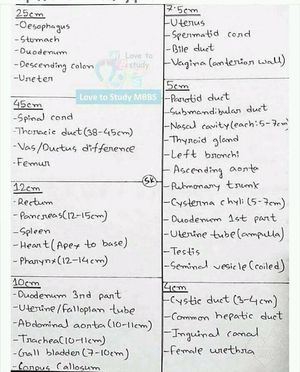 25cm
-Oesophagus
-Stomach
-Duodenum
-Descending colon
-Ureter
45cm
-Spinal cord
-Thoracic duct (38-45cm)
-Vas/Ductus difference
-Femur
12cm
-Rectum
-Pancreas (12-15cm)
-Spleen
-Heart (Apex to base)
-Pharynx (12-14cm)
10cm
-Duodenum 3rd part
-Uterine/Fallopian tube
-Abdominal aorta (10-11cm)
-Trachea (10-11cm)
-Gall bladder (7-10cm)
-Corpus Callosum
Love to
study
Love to Study MBBS
SK
7.5cm
-Uterus
-Spermatid cord
-Bile duct
-Vagina (anterior wall)
5cm
-Parotid duct
-Submandibular duct
-Nasal cavity (each: 5-7cm)
-Thyroid gland
-Left bronchi
-Ascending aorta
-Pulmonary trunk
-Cysterna chyli (5-7cm)
-Duodenum 1st part
-Uterine tube (ampulla)
-Testis
-Seminal vesicle (coiled)
4cm
-Cystic duct (3-4cm)
-Common hepatic duct
-Inguinal canal
-Female urethra